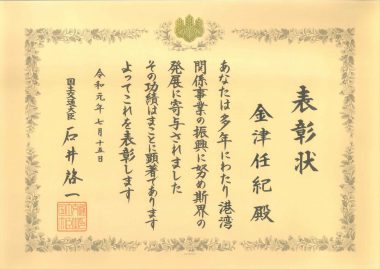 表彰状
金津任紀殿
あなたは多年にわたり港湾
関係事業の振興に努め斯界の
発展に寄与されました
その功績はまことに顕著であります
よってこれを表彰します
令和元年七月十五日
国土交通大臣 石井啓一